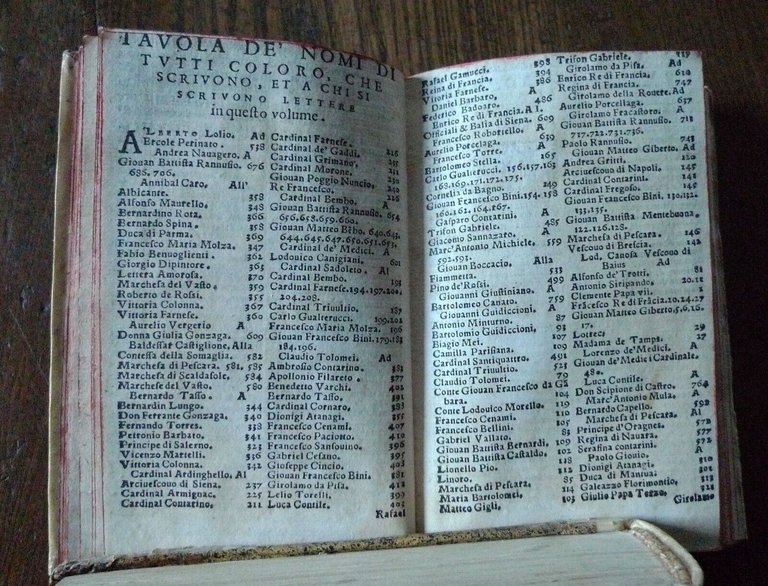 TAVOLA DE' NOMI DI
TVTTI COLORO, CHE
SCRIVONO, ET A CHI SI
SCRIVONO LETTERE
in questo volume.
ALBERTO Lolio. Ad
Ercole Perinato. 538
Andrea Nauagero. A
Giouan Battista Rannusio. 676
686. 706.
Annibal Caro. All'
Albicante. 358
Alfonso Maurello. 348
Bernardino Rota. 366
Bernardo Spina. 358
Duca di Parma. 369
Francesco Maria Molza. 347
Fabio Benuoglienti. 362
Giorgio Dipintore. 363
Lettera Amorosa. 870
Marchesa del Vasto. 359
Roberto de Rossi. 355
Vittoria Colonna. 367
Vittoria Farnese. 360
Aurelio Vergerio A
Donna Giulia Gonzaga. 609
Baldessar Castiglione. Alla
Contessa della Somaglia. 582
Marchesa di Pescara. 581. 585
Marchesa di Scaldasole. 584
Marchese del Vasto. 580
Bernardo Tasso. A
Bernardin Lungo. 344
Don Ferrante Gonzaga. 340
Fernando Torres. 338
Petronio Barbato. 341
Principe di Salerno. 323
Vicenzo Martelli. 336
Vittoria Colonna. 342
Cardinal Ardinghello. Al
Arciuescouo di Siena. 237
Cardinal Armignac. 225
Cardinal Contarino. 211
Cardinal Farnese. 226
Cardinal de' Gaddi.
Cardinal Grimano.
Cardinal Morone.
Giouan Poggio Nuncio. 230
Re Francesco. 216
Cardinal Bembo. A
Giouan Battista Rannusio. 654
656. 658. 659. 660.
Giouan Matteo Bẽbo. 640. 643.
644. 645. 647. 650. 651. 653.
Cardinal de' Medici. A
Lodouico Canigiani. 601
Cardinal Sadoleto Al
Cardinal Bembo. 193
Cardinal Farnese. 194. 197. 204.
204. 208.
Cardinal Triuultio. 187
Carlo Gualteruzzi. 199. 203
Francesco Maria Molza. 196
Giouan Francesco Bini. 179. 183
184. 196.
Claudio Tolomei. Ad
Ambrosio Contarino. 381
Apollonio Filareto. 377
Benedetto Varchi. 402
Bernardo Tasso. 391
Cardinal Cornaro. 383
Dionigi Atanagi. 355
Francesco Cenami. 407
Francesco Paciotto. 410
Francesco Sansouino. 396
Gabriel Cesano. 395
Gioseppe Cincio. 403
Giouan Francesco Bini. 381
Girolamo da Pisa. 412
Lelio Torelli. 399
Luca Contile. 403
Rafael
Rafael Gamucci. 398
Reina di Francia. 394
Vitoria Farnese. 386
Daniel Barbaro. A
Federico Badoaro. 486
Enrico Re di Francia. Al.
Officiali & Balia di Siena. 609
Francesco Robortello. A
Aurelio Porcelaga. 630
Francesco Torre. A
Bartolomeo Stella. 165
Carlo Gualteruzzi. 156. 157. 163
168. 169. 171. 172. 175.
Cornelia da Bagno. 149
Giouan Francesco Bini. 154. 158
160. 162. 164. 167.
Gasparo Contarini A
Trifon Gabriele. 485
Giacomo Sannazaro. A
Marc'Antonio Michele. 559
592. 593.
Giouan Boccacio Alla
Fiammetta. 531
Pino de'Rossi. 499
Giouanni Giustiniano A
Bartolomeo Canato. 759
Giouanni Guidiccioni A
Antonio Minturno. 87
Bartolomio Guidiccioni. 93
Biagio Mei. 107
Camilla Parisana. 109
Cardinal Santiquattro. 491
Cardinal Triuultio. 525
Claudio Tolomei. 79
Conte Giouan Francesco da Gã
bara. 88
Conte Lodouico Morello. 104
Francesco Cenami. 109
Francesco Bellini. 110
Gabriel Vallato. 81
Giouan Battista Bernardi. 109
Giouan Battista Castaldo. 102
Lionello Pio. 118
Linoro. 112
Marchesa di Pescara. 85
Maria Bartolomei. 114
Matteo Gigli. 103
Trifon Gabriele. 119
Girolamo da Pisa. Ad
Enrico Re di Francia. 610
Regina di Francia. 747
Girolamo della Rouere. Ad
Aurelio Porcellaga. 637
Girolamo Fracastoro A
Giouan Battista Rannusio. 711
717. 722. 731. 736.
Paolo Rannusio. 743
Giouan Matteo Giberto. Ad
Andrea Gritti. 120
Arciuescouo di Napoli. 145
Cardinal Contarini. 141
Cardinal Fregoso.
Giouan Francesco Bini. 130. 132
133. 135.
Giouan Battista Mentebuona.
122. 126. 128.
Marchesa di Pescara. 146
Vescouo di Brescia. 142
Lod. Canosa Vescouo di
Baius Ad
Alfonso de'Trotti. 81
Antonio Siripando. 20. 11
Clemente Papa vii. 1
Frãcesco Re di Frãcia. 10. 24. 27
Giouan Matteo Giberto. 5. 6. 16.
17.
Lottei 29
Madama de Tamps. 27
Lorenzo de'Medici. A
Giouan de'Medici Cardinale.
480.
Luca Contile. A
Don Scipione di Castro. 764
Marc'Antonio Mula. A
Bernardo Capello. 592
Marchesa di Pescara Al
Principe d'Oranges. 572
Regina di Nauara. 577
Serafina contarini. 592
Paolo Giouio. A
Dionigi Atanagi. 310
Duca di Mantua. 321
Galeazzo Florimontio. 318
Giulio Papa Terzo. 328
Girolamo